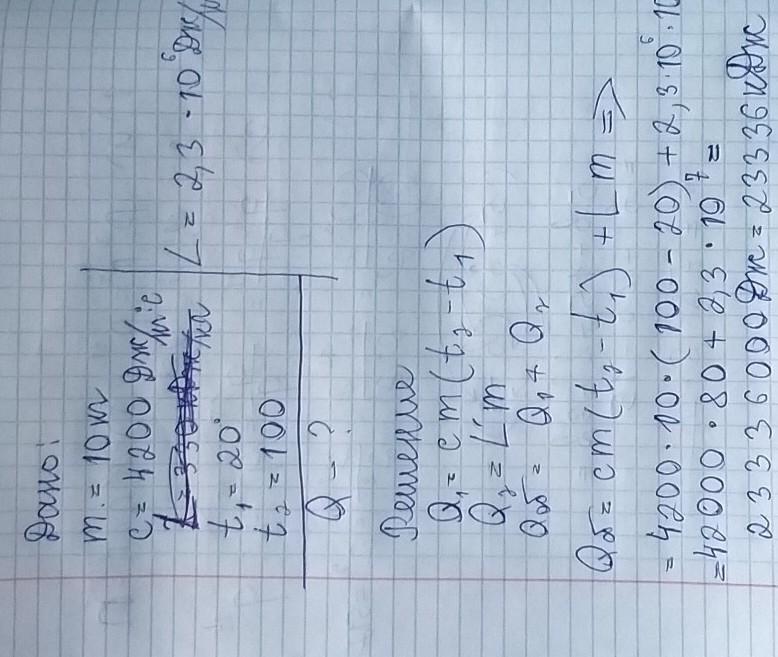 Дано:
m = 10 кг
c = 4200 Дж/кг°C
L = 2,3 · 10⁶ Дж/
t₁ = 20°
t₂ = 100
Q - ?
Решение
Q₁ = cm(t₂ - t₁)
Q₂ = Lm
Qоб = Q₁ + Q₂
Qоб = cm(t₂ - t₁) + Lm =>
= 4200 · 10 · (100 - 20) + 2,3 · 10⁶ · 10
= 42000 · 80 + 2,3 · 10⁷ =
23336000 Дж = 23336 кДж